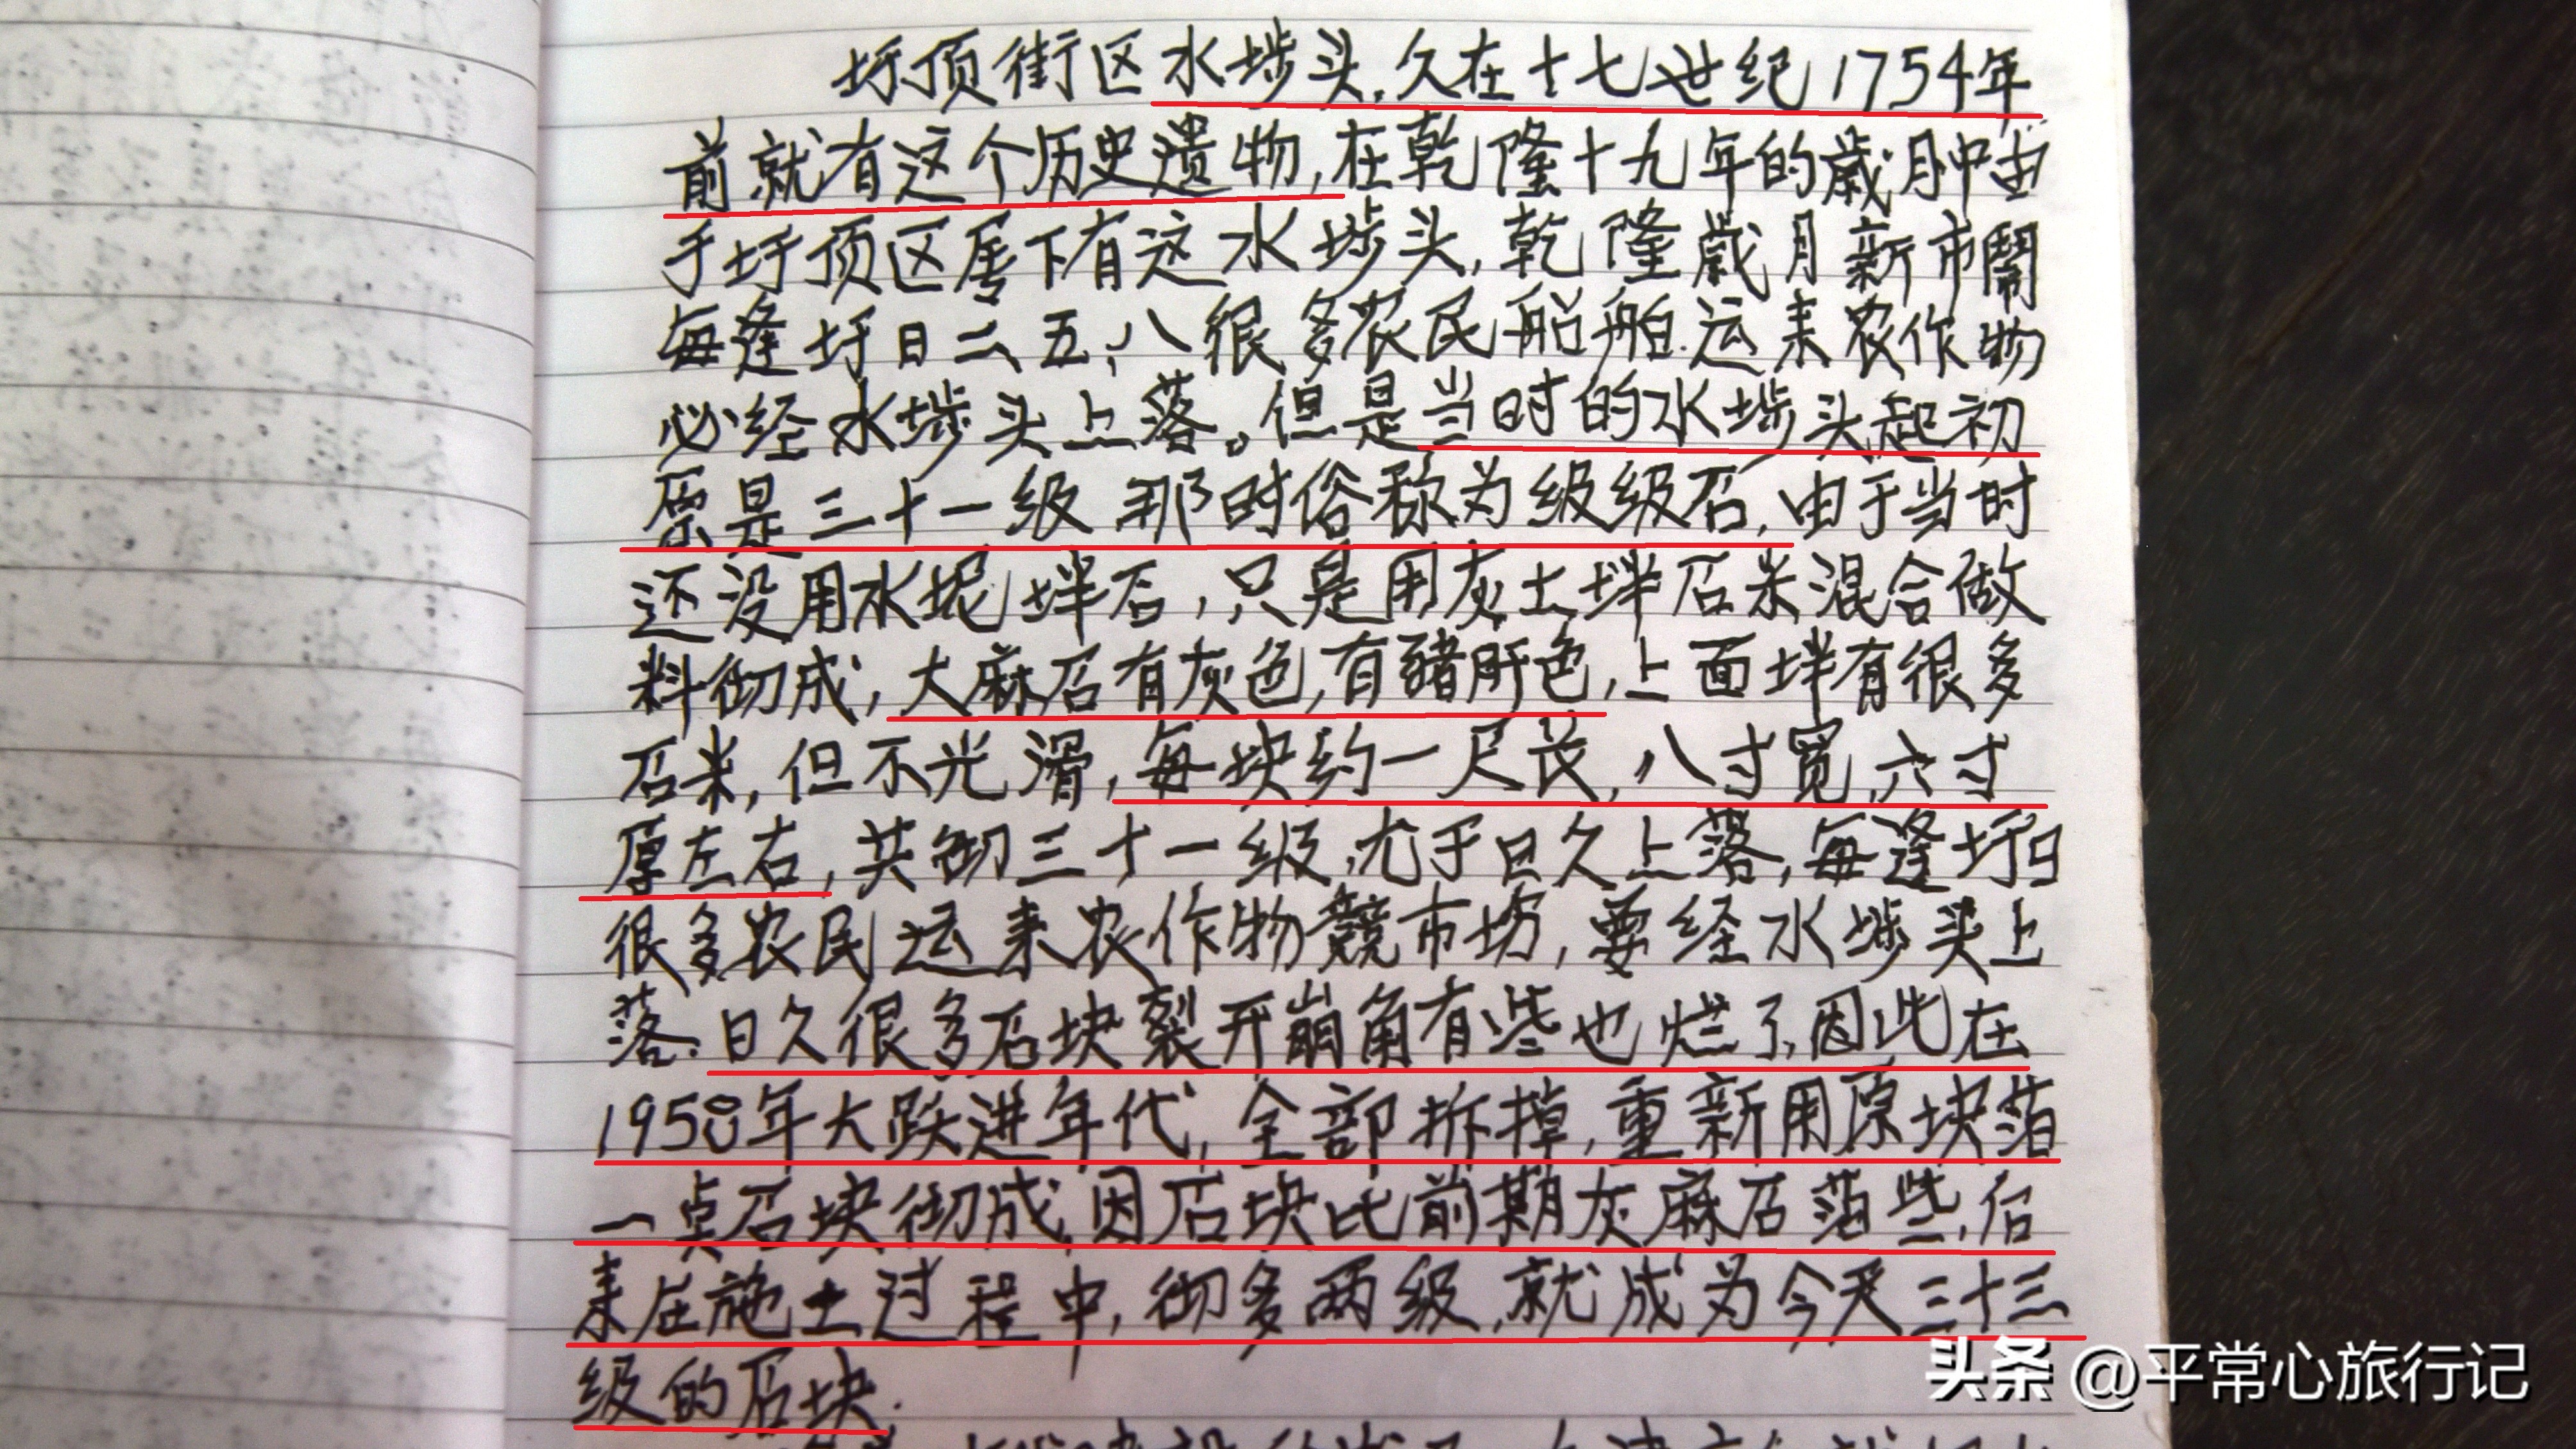 圩顶街区水埗头,久在十七世纪1754年
前就有这个历史遗物,在乾隆十九年的歲月中由
于圩顶区厓下有这水埗头,乾隆歲月新市鬧
每逢圩日二、五、八很多农民船舶运来农作物
必经水埗头上落。但是当时的水埗头起初
原是三十一级 那时俗称为级级石,由于当时
还没用水坭垟石,只是用灰土垟石米混合做
料彻成,大麻石有灰色,有豬肝色,上面垟有很多
石米,但不光滑,每块约一尺长,八寸宽,六寸
厚左右,共彻三十一级,尤于日久上落,每逢圩日
很多农民运来农作物競市场,要经水埗头上
落.日久很多石块裂开崩角有些也烂了,因此在
1958年大跃进年代,全部拆掉,重新用原块
一点石块彻成,因石块比前期灰麻石些,后
来在施土过程中,彻多两级,就成为今天三十三
级的石块.
头条 @平常心旅行记